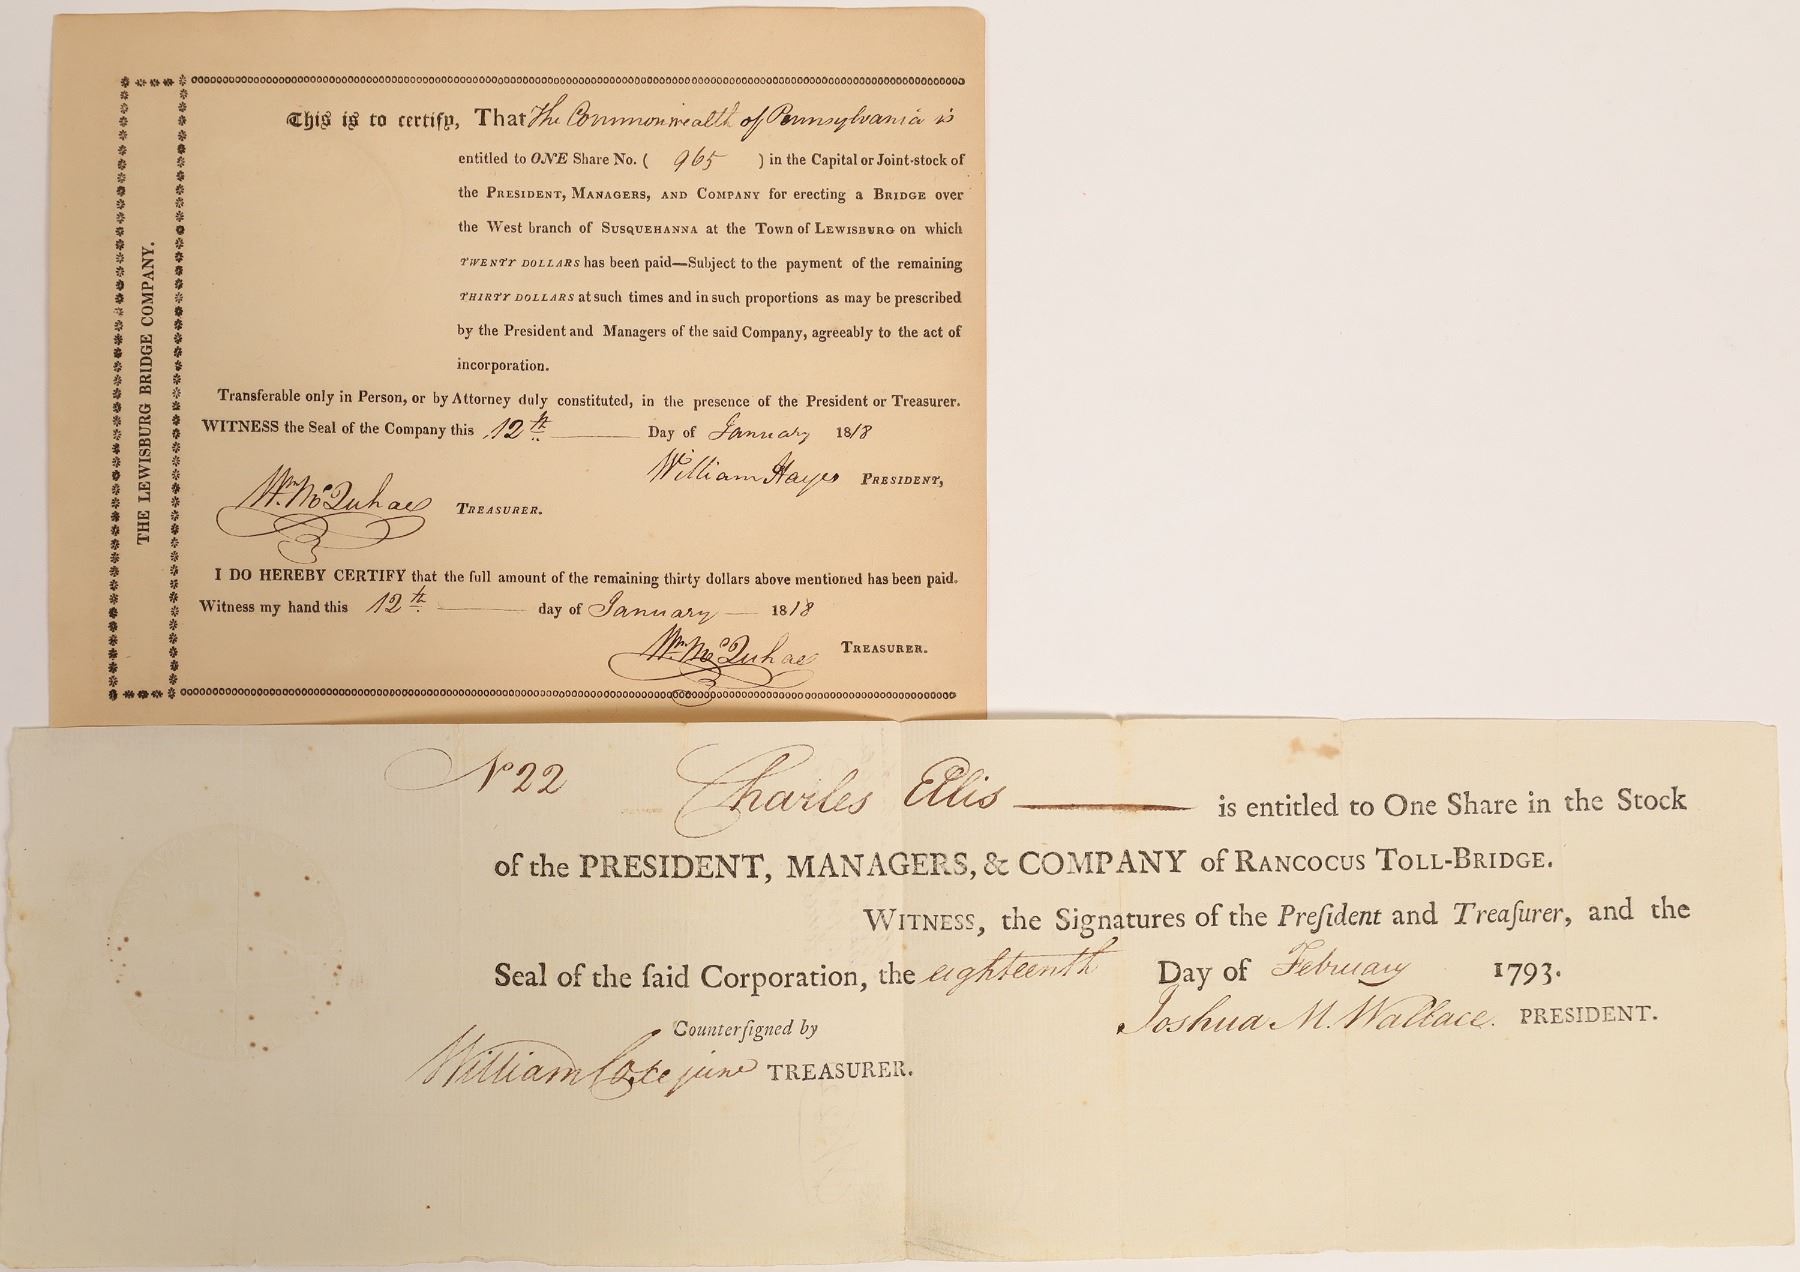 THE LEWISBURG BRIDGE COMPANY.
This is to certify, That The Commonwealth of Pennsylvania is
entitled to ONE Share No. ( 965 ) in the Capital or Joint-stock of
the PRESIDENT, MANAGERS, AND COMPANY for erecting a BRIDGE over
the West branch of SUSQUEHANNA at the Town of LEWISBURG on which
TWENTY DOLLARS has been paid—Subject to the payment of the remaining
THIRTY DOLLARS at such times and in such proportions as may be prescribed
by the President and Managers of the said Company, agreeably to the act of
incorporation.
Transferable only in Person, or by Attorney duly constituted, in the presence of the President or Treasurer.
WITNESS the Seal of the Company this 12th Day of January 1818
William Hayes PRESIDENT,
Wm. McQuhae TREASURER.
I DO HEREBY CERTIFY that the full amount of the remaining thirty dollars above mentioned has been paid.
Witness my hand this 12th day of January 1818
Wm. McQuhae TREASURER.
No 22 Charles Ellis is entitled to One Share in the Stock
of the PRESIDENT, MANAGERS, & COMPANY of RANCOCUS TOLL-BRIDGE.
WITNESS, the Signatures of the Preſident and Treaſurer, and the
Seal of the ſaid Corporation, the eighteenth Day of February 1793.
Joshua M. Wallace. PRESIDENT.
Counterſigned by
William Coxe junr TREASURER.